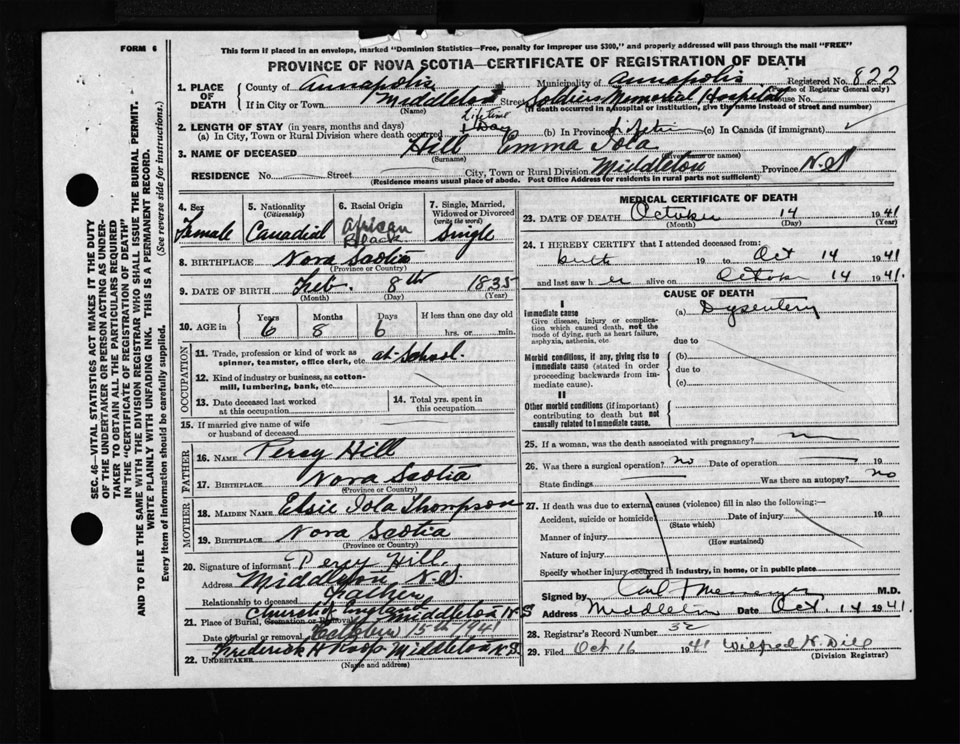 FORM 6
This form if placed in an envelope, marked "Dominion Statistics—Free, penalty for improper use $300," and properly addressed will pass through the mail "FREE"
PROVINCE OF NOVA SCOTIA—CERTIFICATE OF REGISTRATION OF DEATH
1. PLACE OF DEATH
County of Annapolis Municipality of Annapolis Registered No. 822
(Use of Registrar General only)
If in City or Town Middleton Street Soldiers Memorial Hospital House No.
(Name) (If death occurred in a hospital or institution, give the name instead of street and number)
2. LENGTH OF STAY (in years, months and days) Lifetime
(a) In City, Town or Rural Division where death occurred 1 Day (b) In Province Lifetime (c) In Canada (if immigrant)
3. NAME OF DECEASED Hill Emma Iola
(Surname) (Given name or names)
RESIDENCE No. Street City, Town or Rural Division Middleton Province N.S
(Residence means usual place of abode. Post Office Address for residents in rural parts not sufficient)
4. Sex
Female
5. Nationality
(Citizenship)
Canadial
6. Racial Origin
African
Black
7. Single, Married, Widowed or Divorced
(write the word)
Single
8. BIRTHPLACE Nova Scotia
(Province or Country)
9. DATE OF BIRTH Feb. 8th 1835
(Month) (Day) (Year)
10. AGE in
Years Months Days If less than one day old
6 8 6 hrs. or min.
OCCUPATION
11. Trade, profession or kind of work as spinner, teamster, office clerk, etc. at School.
12. Kind of industry or business, as cotton-mill, lumbering, bank, etc.
13. Date deceased last worked at this occupation
14. Total yrs. spent in this occupation
15. If married give name of wife or husband of deceased
FATHER
16. NAME Percy Hill
17. BIRTHPLACE Nova Scotia
(Province or Country)
MOTHER
18. MAIDEN NAME Elsie Iola Thompson
19. BIRTHPLACE Nova Scotia
(Province or Country)
20. Signature of informant Percy Hill.
Address Middleton N.S.
Relationship to deceased Father
21. Place of Burial, Cremation or Removal Church of England Middleton N.S
Date of burial or removal October 15th 1941
22. UNDERTAKER Frederick H Roop Middleton N.S
(Name and address)
MEDICAL CERTIFICATE OF DEATH
23. DATE OF DEATH October 14 1941
(Month) (Day) (Year)
24. I HEREBY CERTIFY that I attended deceased from:
birth 19 to Oct 14 1941
and last saw h er alive on October 14 1941.
CAUSE OF DEATH
I
Immediate cause
Give disease, injury or complication which caused death, not the mode of dying, such as heart failure, asphyxia, asthenia, etc.
(a) Dysentery
due to
Morbid conditions, if any, giving rise to immediate cause (stated in order proceeding backwards from immediate cause).
(b)
due to
(c)
II
Other morbid conditions (if important) contributing to death but not causally related to immediate cause.
25. If a woman, was the death associated with pregnancy?
26. Was there a surgical operation? No Date of operation 19
State findings Was there an autopsy? No
27. If death was due to external causes (violence) fill in also the following:—
Accident, suicide or homicide Date of injury 19
(State which)
Manner of injury
(How sustained)
Nature of injury
Specify whether injury occurred in industry, in home, or in public place
Signed by M.D.
Address Middleton Date Oct. 14 1941.
28. Registrar's Record Number 32
29. Filed Oct 16 1941 Wilfred H. Dill
(Division Registrar)
SEC. 46—VITAL STATISTICS ACT MAKES IT THE DUTY
OF THE UNDERTAKER OR PERSON ACTING AS UNDERTAKER
TO OBTAIN ALL THE PARTICULARS REQUIRED
IN THE "CERTIFICATE OF REGISTRATION OF DEATH"
AND TO FILE THE SAME WITH THE DIVISION REGISTRAR WHO SHALL ISSUE THE BURIAL PERMIT.
WRITE PLAINLY WITH UNFADING INK. THIS IS A PERMANENT RECORD.
Every item of information should be carefully supplied. (See reverse side for instructions.)